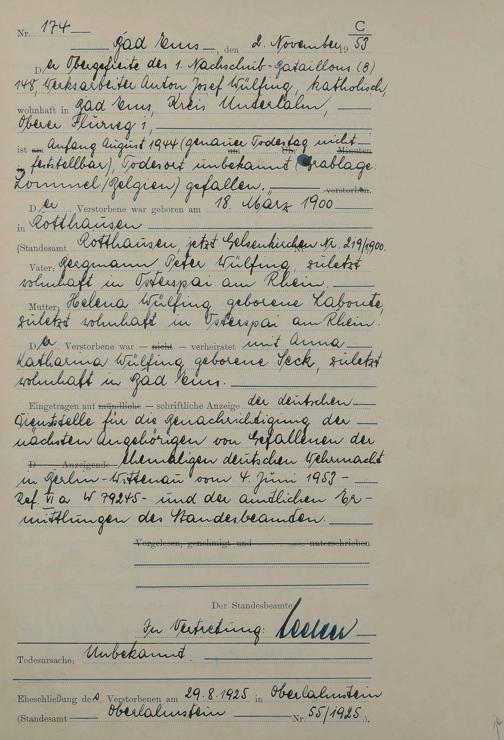 C
Nr. 174
Bad Ems, den 2. November 1953
Der Obergefreite des 1. Nachschub-Bataillons (B)
148, Werksarbeiter Anton Josef Wülfing, katholisch,
wohnhaft in Bad Ems, Kreis Unterlahn,
Oberer Flurweg 1,
ist am Anfang August 1944 (genauer Todestag nicht um Uhr Minuten
feststellbar), Todesort unbekannt (Grablage:
Lommel/Belgien) gefallen. verstorben.
Der Verstorbene war geboren am 18. März 1900
in Rotthausen
(Standesamt Rotthausen, jetzt Gelsenkirchen Nr. 219/1900.
Vater: Bergmann Peter Wülfing, zuletzt
wohnhaft in Osterspai am Rhein.
Mutter: Helena Wülfing, geborene Labonte,
zuletzt wohnhaft in Osterspai am Rhein.
Der Verstorbene war — nicht — verheiratet mit Anna
Katharina Wülfing geborene Seck, zuletzt
wohnhaft in Bad Ems.
Eingetragen auf mündliche — schriftliche Anzeige der deutschen
Dienststelle für die Benachrichtigung der
nächsten Angehörigen von Gefallenen der
D Anzeigende ehemaligen deutschen Wehrmacht
in Berlin-Wittenau vom 4. Juni 1953 -
Ref. VI a W 79245- und der amtlichen Er-
mittlungen des Standesbeamten.
Vorgelesen, genehmigt und unterschrieben
Der Standesbeamte
In Vertretung:
Todesursache: Unbekannt.
Eheschließung des Verstorbenen am 29.8.1925 in Oberlahnstein
(Standesamt Oberlahnstein Nr. 55/1925.).